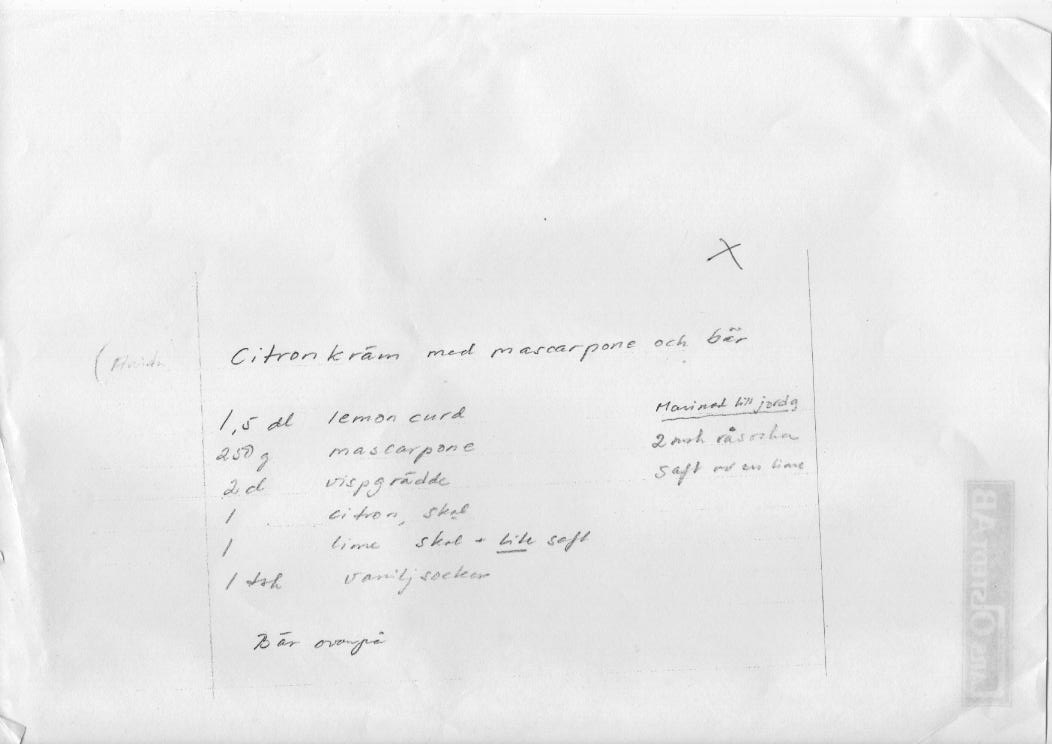 Citronkräm med mascarpone och bär
1,5 dl lemon curd
250 g mascarpone
2 d vispgrädde
1 citron, skal
1 lime skal + lite saft
1 tsk vaniljsocker
Bär ovanpå
Marinad till jordg
2 msk råsocker
saft av en lime